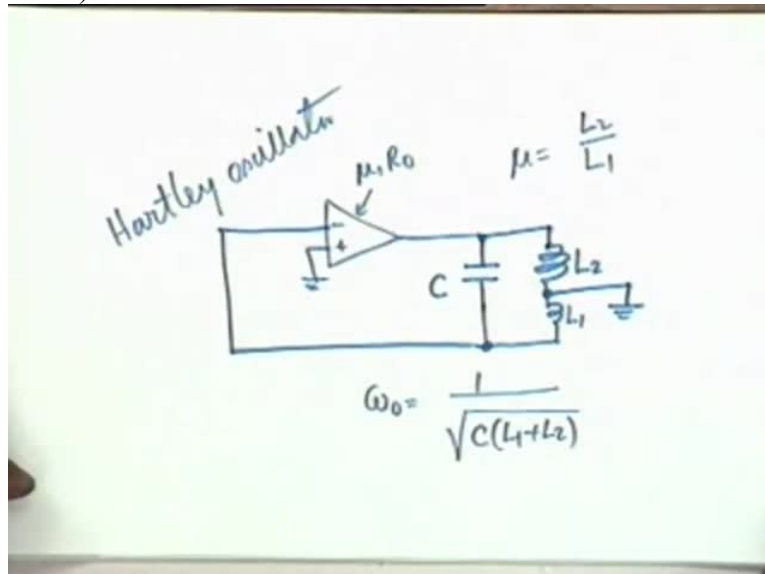 Hartley oscillator
μ, R₀
μ = L₂/L₁
-
+
C
L₂
L₁
ω₀ = 1/√C(L₁+L₂)